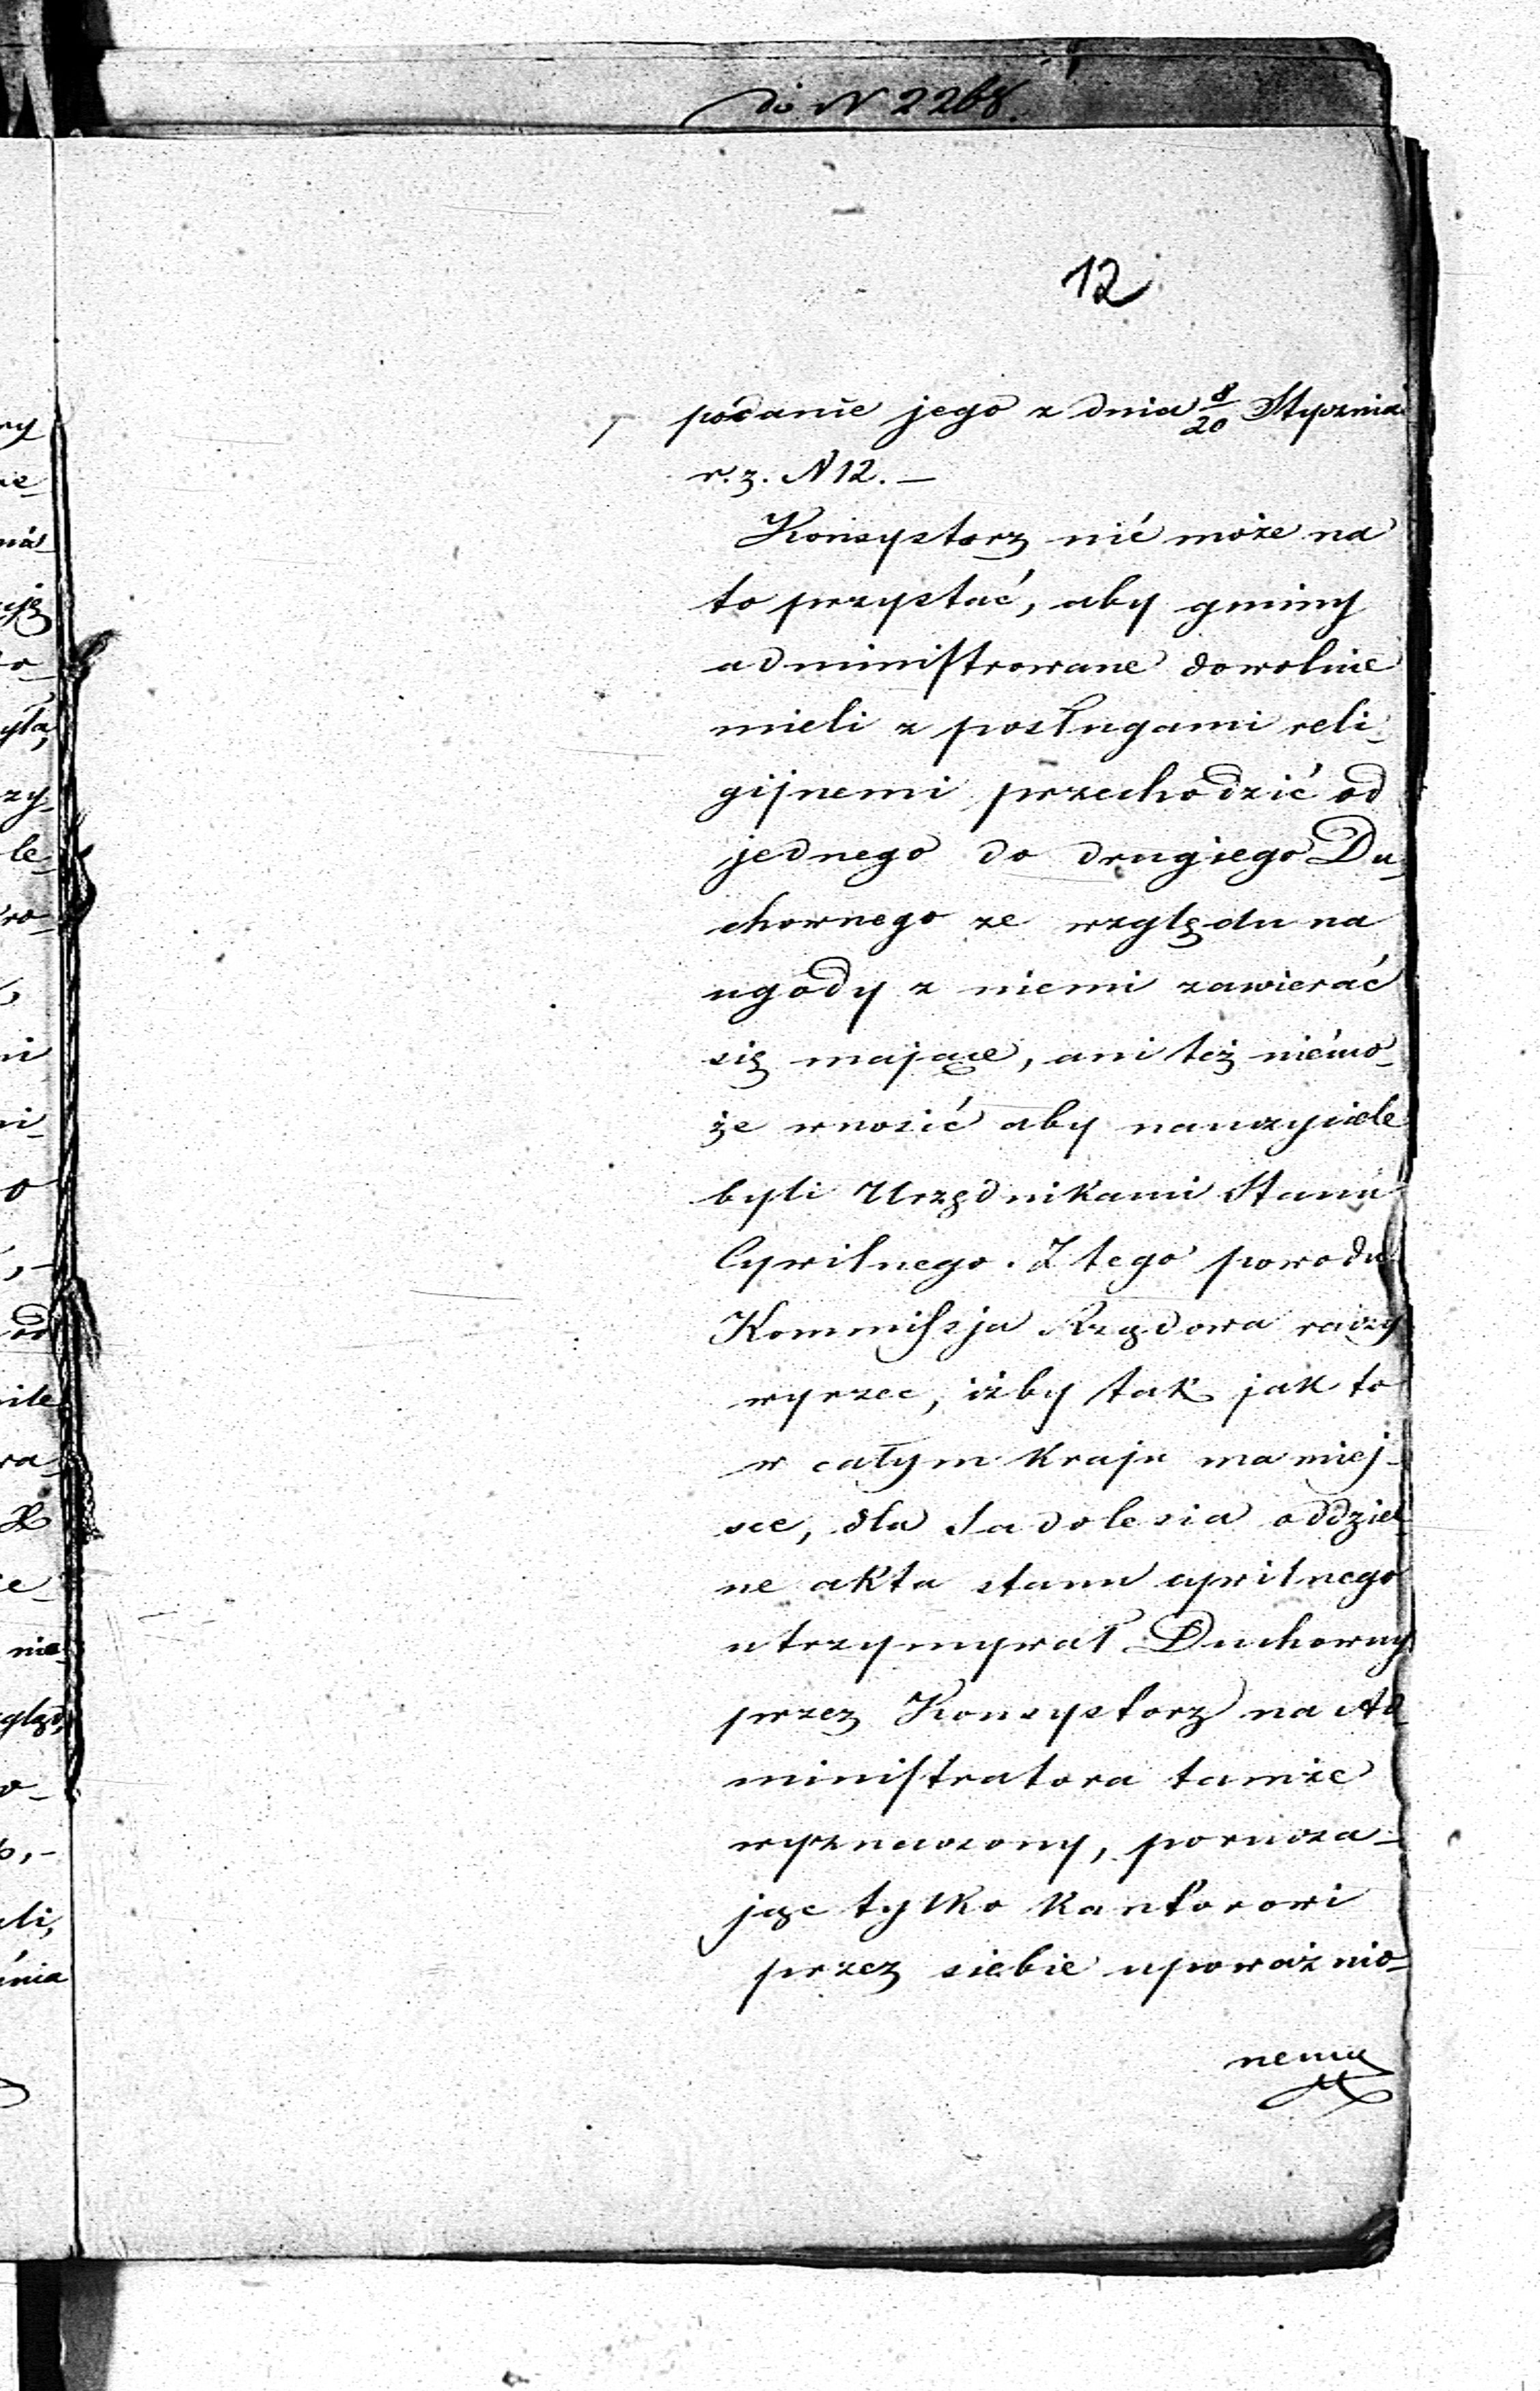 do N 2268.
12
podanie jego z dnia 8/20 Stycznia
r. z. N 12. —
Konsystorz nié może na
to przystać, aby gminy
administrowane dowolnie
mieli z posługami reli-
gijnemi przechodzić od
jednego do drugiego Du-
chownego ze względu na
ugody z niemi zawierać
się mające, ani też niémo-
że wnosić aby nauczyciele
byli Urzędnikami Stanu
Cywilnego. Z tego powodu
Kommissja Rządowa raczy
wyrzec, iżby tak jak to
w całym kraju ma miej-
sce, dla Sadolesia oddziel-
ne akta stanu cywilnego
utrzymywał Duchowny
przez Konsystorz na Ad-
ministratora tamże
wyznaczony, porucza-
jąc tylko kantorowi
przez siebie upoważnio-
nemu